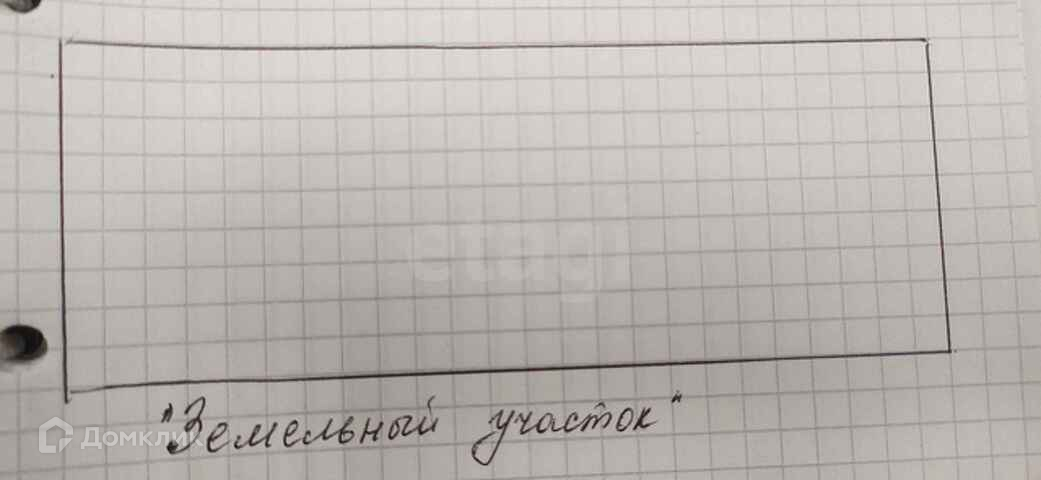 etagi
"Земельный участок"
Домклик